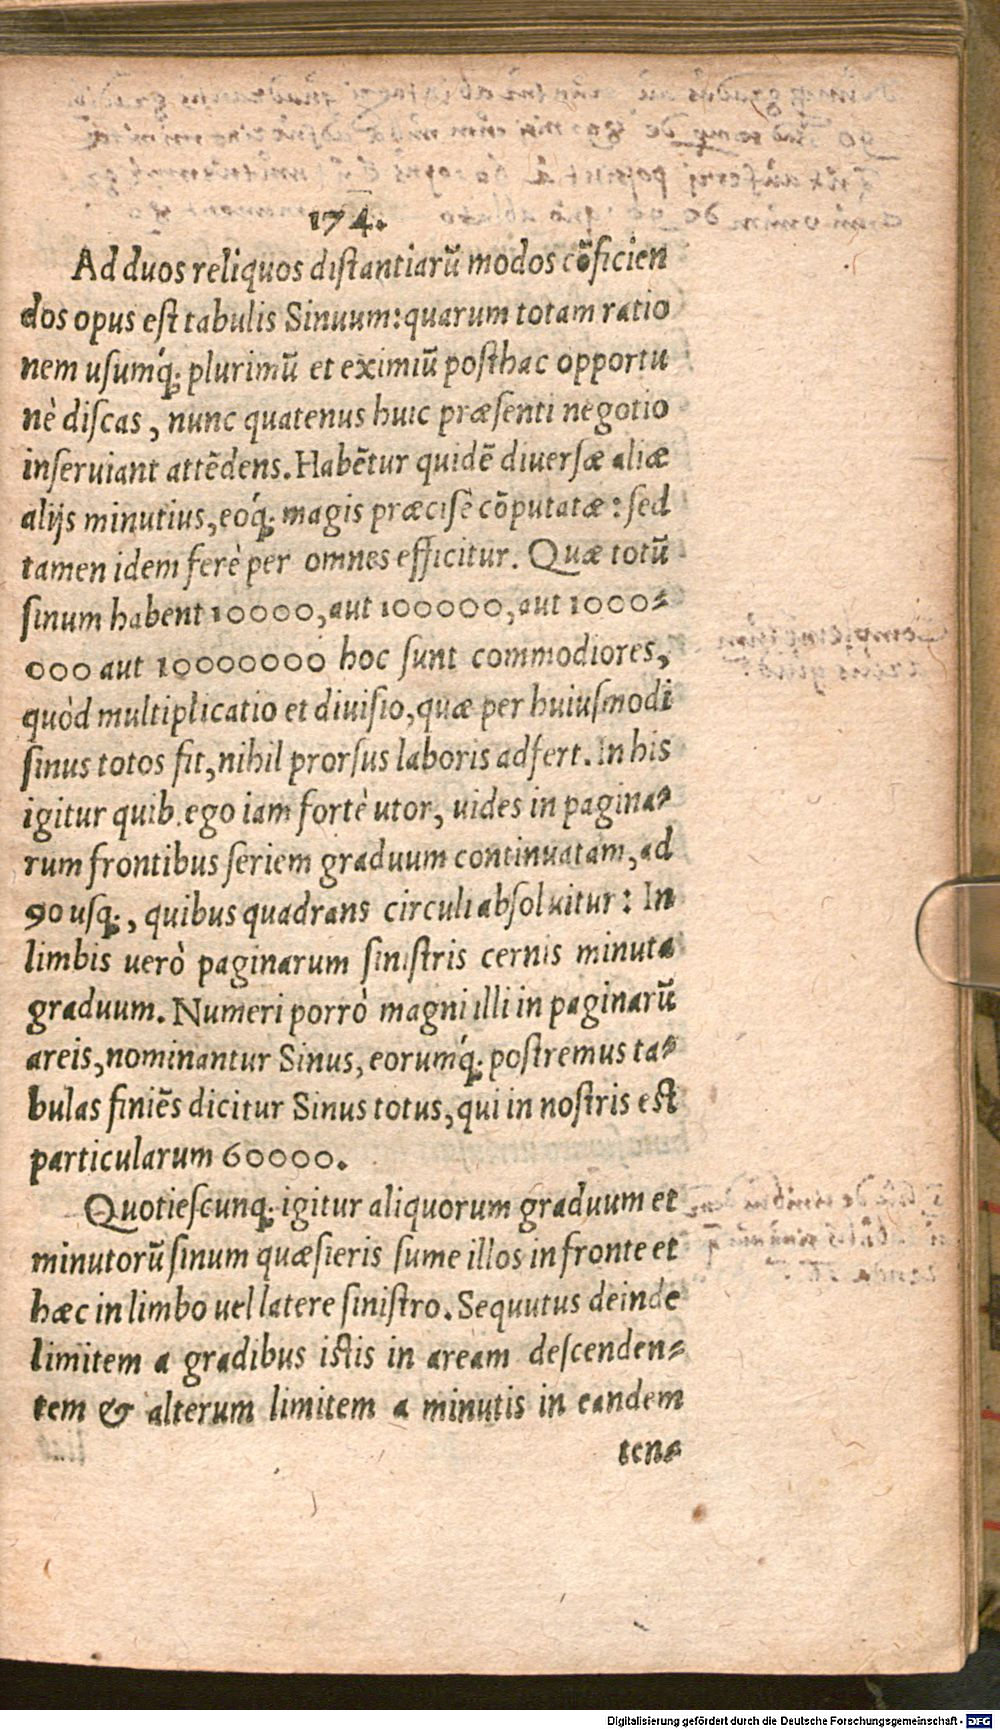 174.
Ad duos reliquos distantiarū modos cōficien
dos opus est tabulis Sinuum: quarum totam ratio
nem usumq́; plurimū et eximiū posthac opportu
nè discas, nunc quatenus huic præsenti negotio
inserviant attēdens. Habētur quidē diversæ aliæ
alijs minutius, eoq́; magis præcisè cōputatæ: sed
tamen idem ferè per omnes efficitur. Quæ totū
sinum habent 10000, aut 100000, aut 1000-
000 aut 10000000 hoc sunt commodiores,
quòd multiplicatio et divisio, quæ per huiusmodi
sinus totos fit, nihil prorsus laboris adfert. In his
igitur quib. ego iam fortè utor, uides in pagina-
rum frontibus seriem graduum continuatam, ad
90 usq;, quibus quadrans circuli absolvitur: In
limbis uerò paginarum sinistris cernis minuta
graduum. Numeri porrò magni illi in paginarū
areis, nominantur Sinus, eorumq́; postremus ta-
bulas finiēs dicitur Sinus totus, qui in nostris est
particularum 60000.
Quotiescunq; igitur aliquorum graduum et
minutorū sinum quæsieris sume illos in fronte et
hæc in limbo uel latere sinistro. Sequutus deinde
limitem a gradibus istis in aream descenden-
tem & alterum limitem a minutis in eandem
ten-
Digitalisierung gefördert durch die Deutsche Forschungsgemeinschaft - DFG